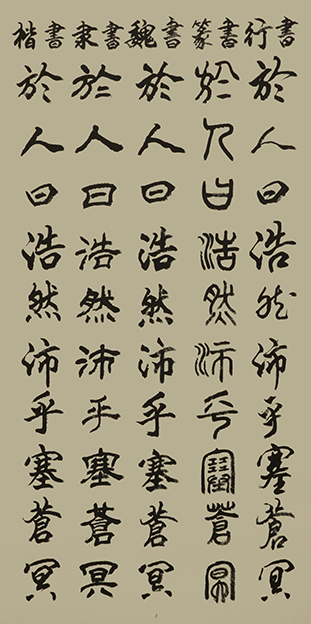 行書
於人曰浩然沛乎塞蒼冥
篆書
於人曰浩然沛乎塞蒼冥
魏書
於人曰浩然沛乎塞蒼冥
隶書
於人曰浩然沛乎塞蒼冥
楷書
於人曰浩然沛乎塞蒼冥